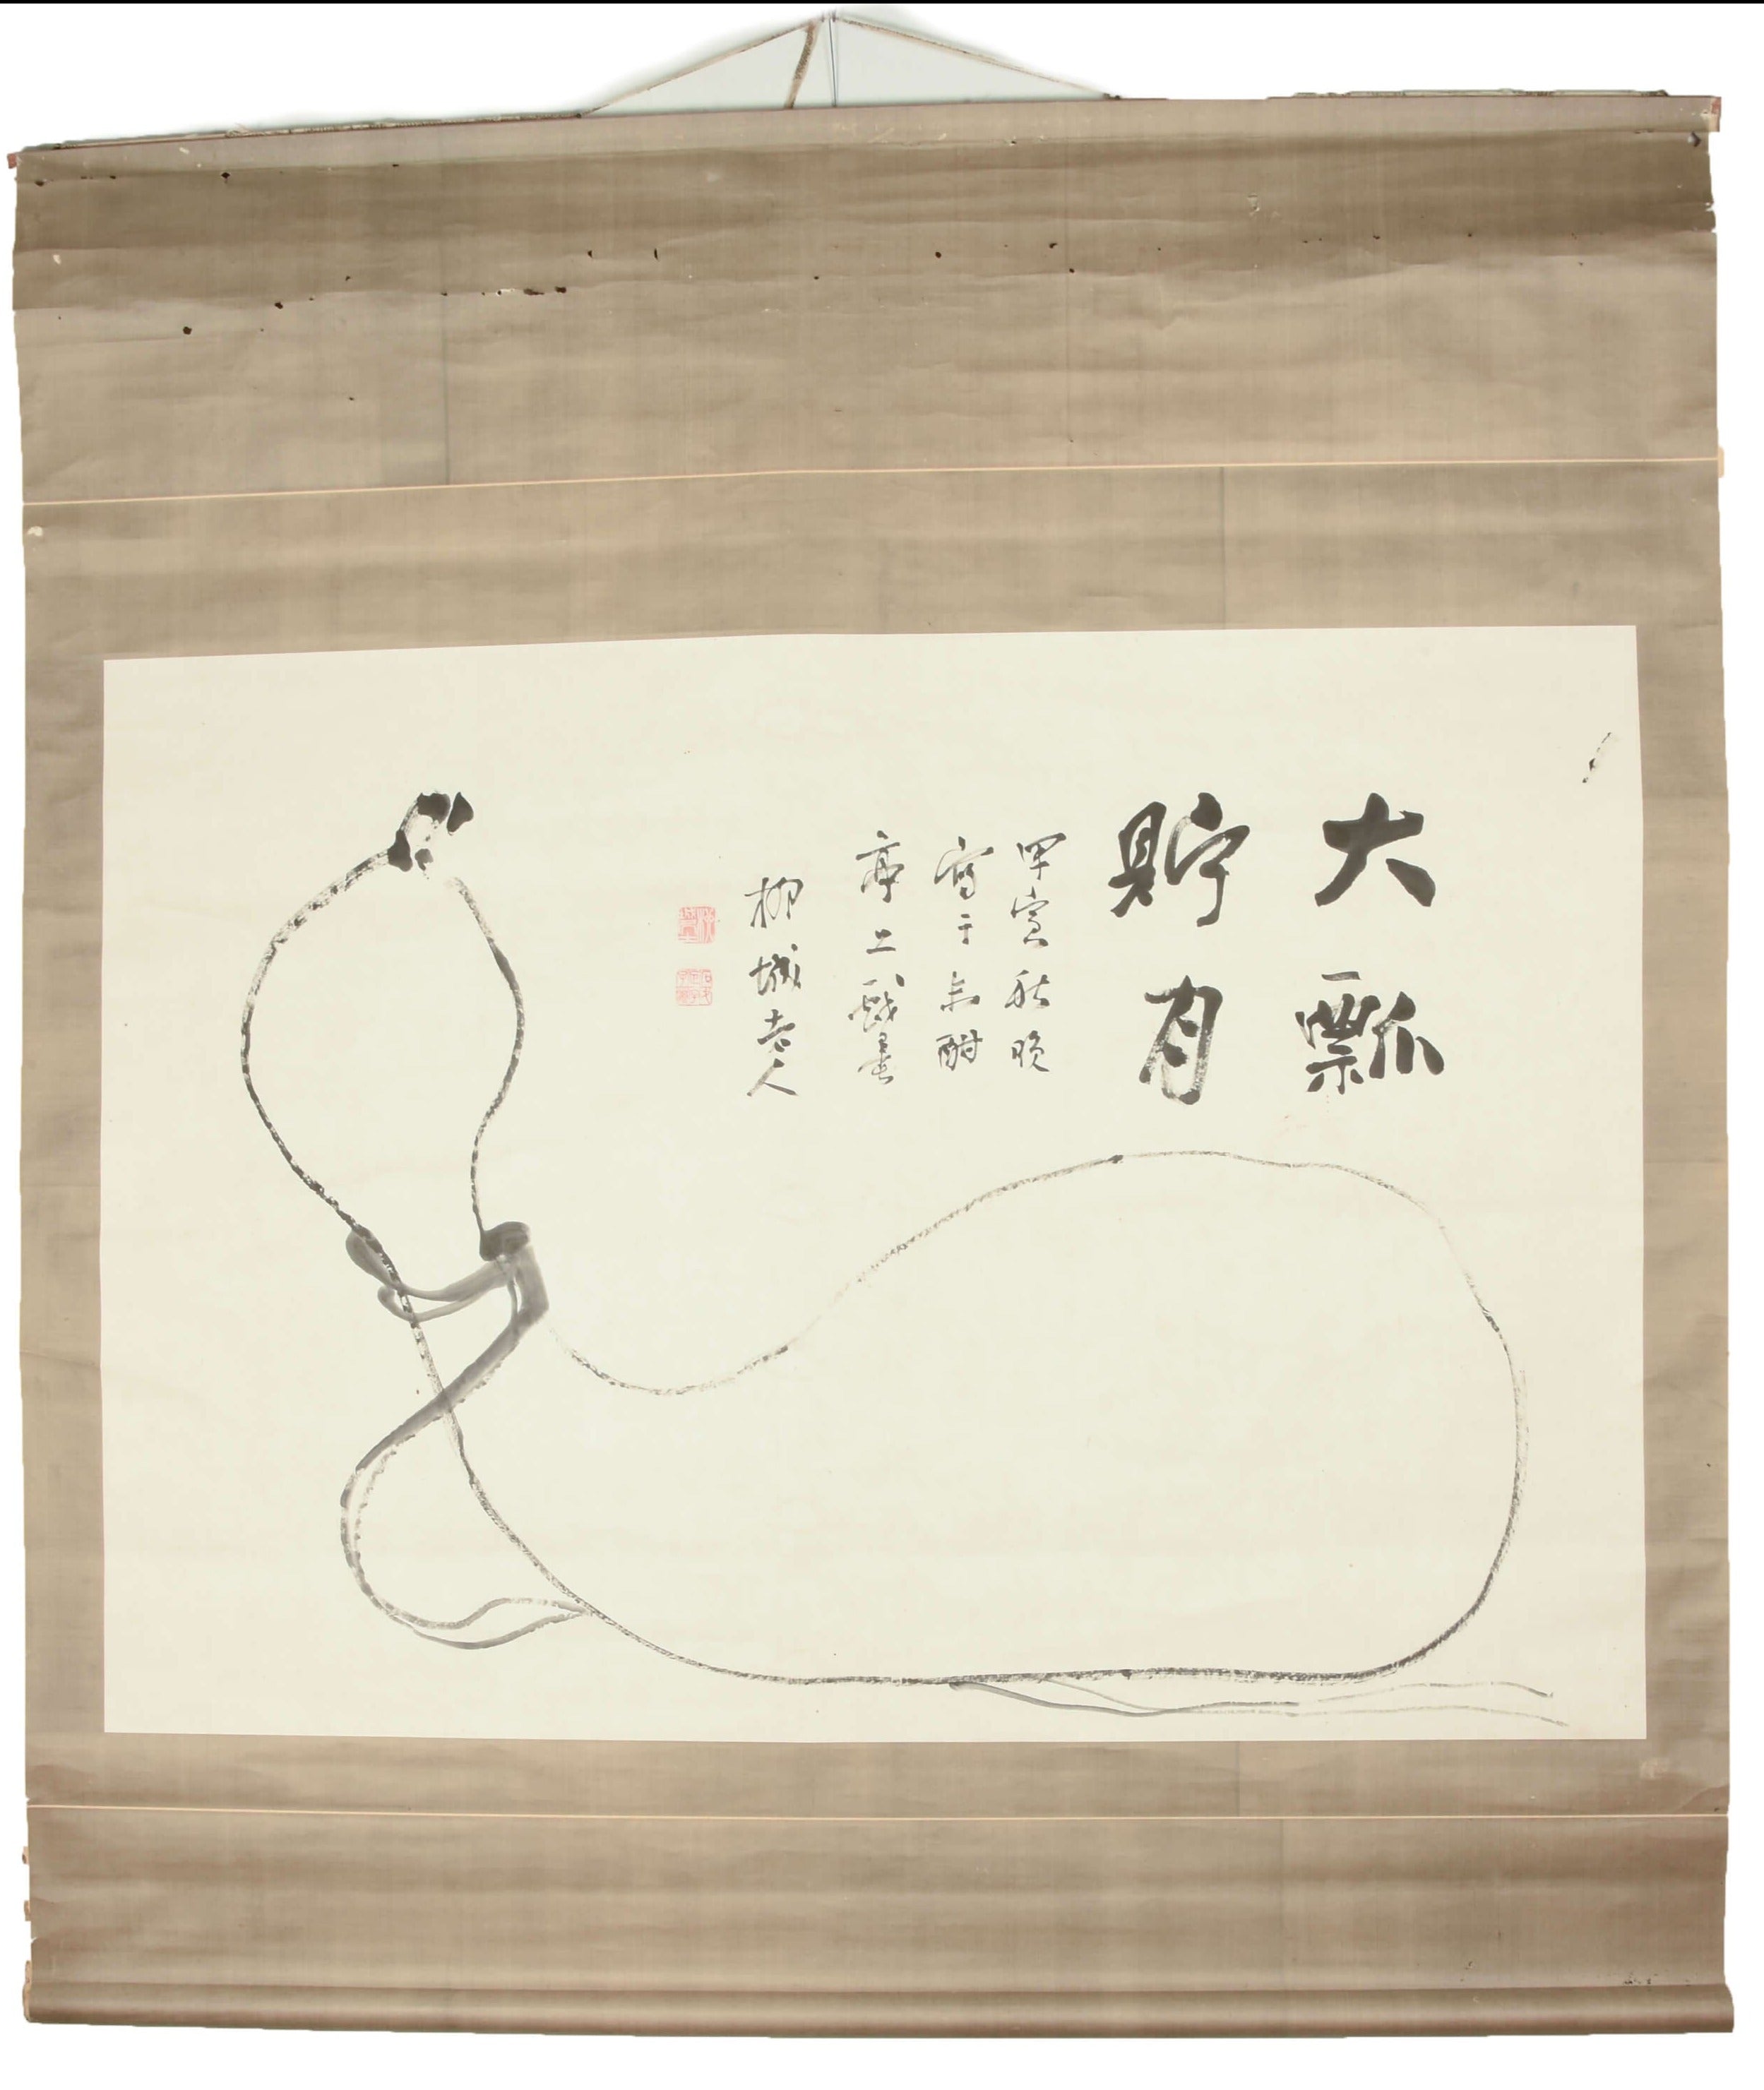 大瓢
貯月
甲寅秋晩
寫于未酣
亭上戯墨
柳城老人